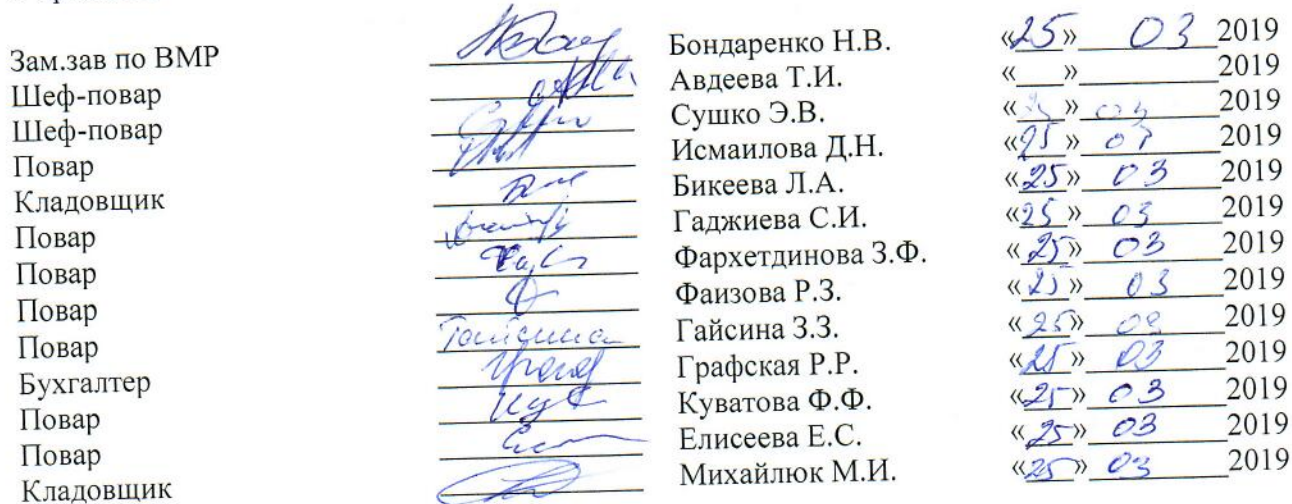 Зам.зав по ВМР Бондаренко Н.В. «25» 03 2019
Шеф-повар Авдеева Т.И. «__» 2019
Шеф-повар Сушко Э.В. « » 03 2019
Повар Исмаилова Д.Н. «25» 03 2019
Кладовщик Бикеева Л.А. «25» 03 2019
Повар Гаджиева С.И. «25» 03 2019
Повар Фархетдинова З.Ф. «25» 03 2019
Повар Фаизова Р.З. «25» 03 2019
Повар Гайсина Гайсина З.З. «25» 03 2019
Бухгалтер Графская Р.Р. «25» 03 2019
Повар Куватова Ф.Ф. «25» 03 2019
Повар Елисеева Е.С. «25» 03 2019
Кладовщик Михайлюк М.И. «25» 03 2019